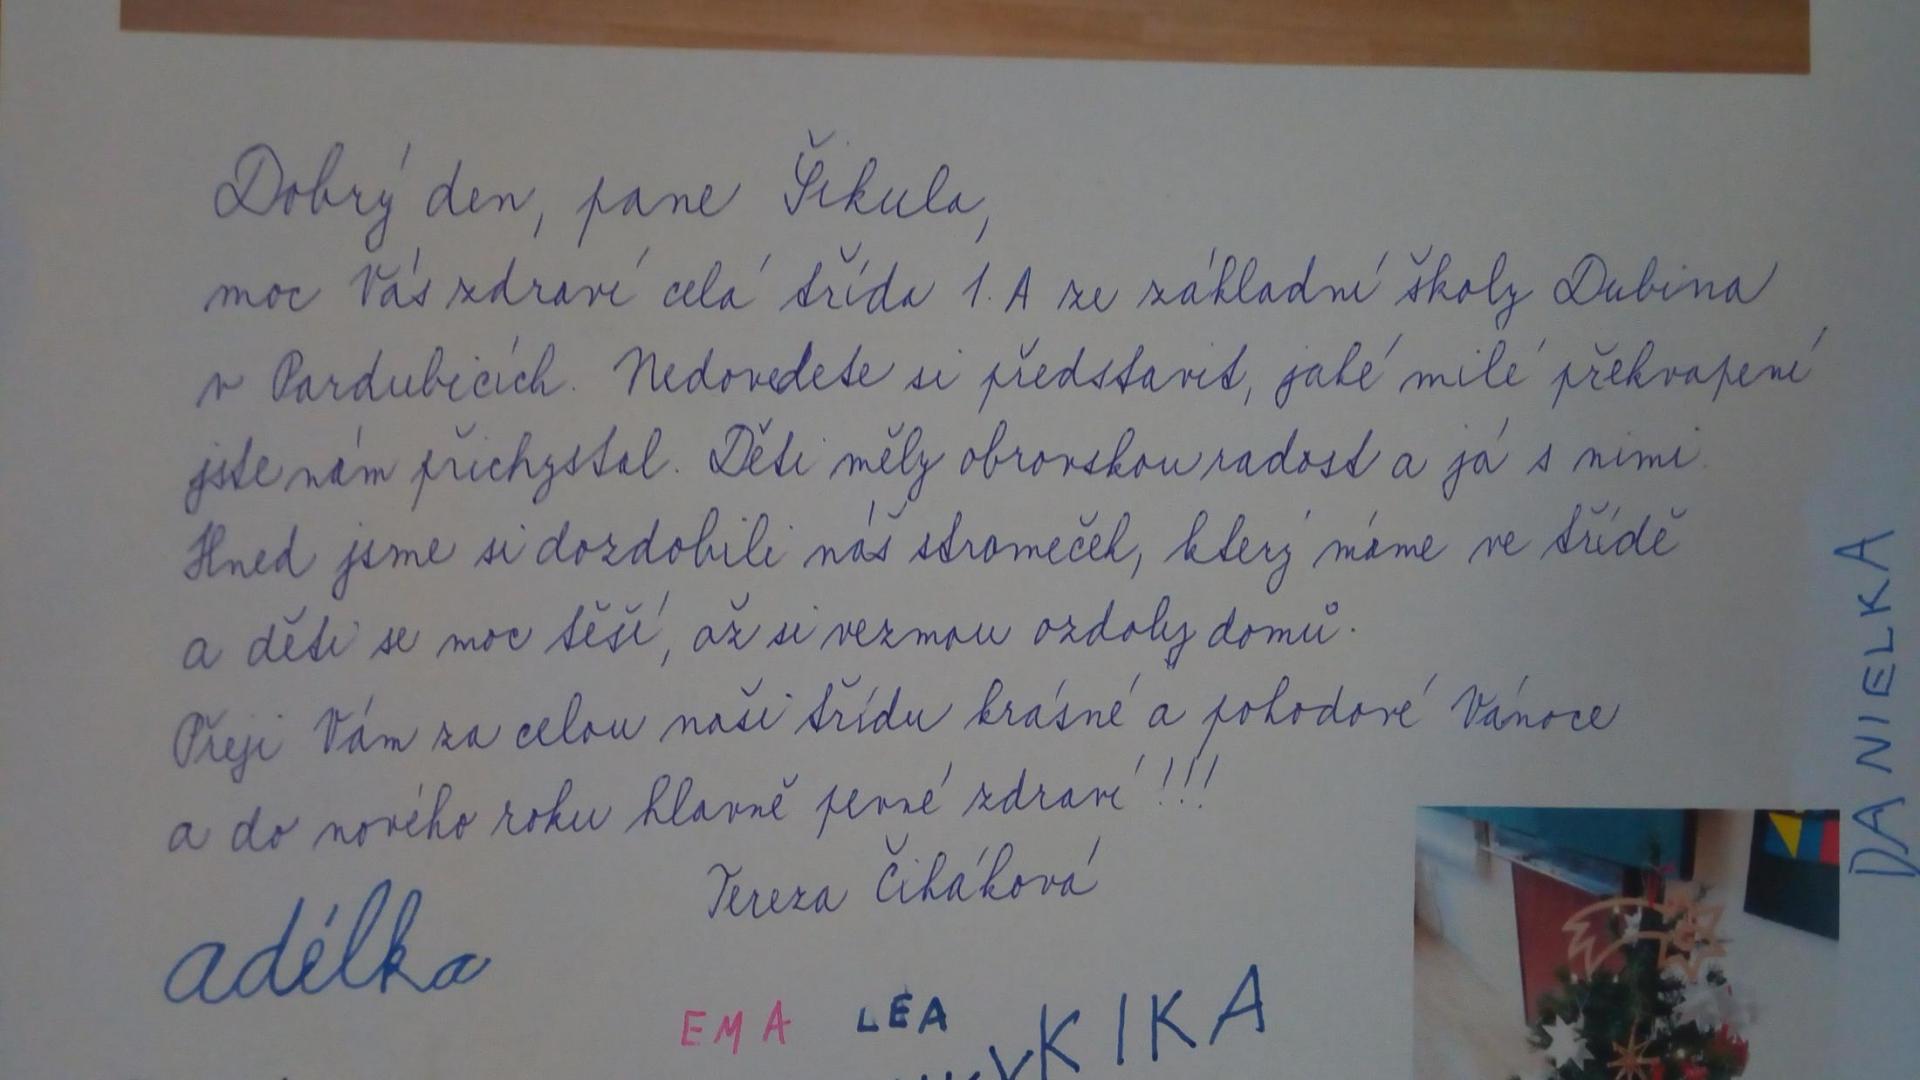 Dobrý den, pane Šikula,
moc Vás zdraví celá třída 1. A ze základní školy Dubina
v Pardubicích. Nedovedete si představit, jaké milé překvapení
jste nám přichystal. Děti měly obrovskou radost a já s nimi.
Hned jsme si dozdobili náš stromeček, který máme ve třídě
a děti se moc těší, až si vezmou ozdoby domů.
Přeji Vám za celou naši třídu krásné a pohodové Vánoce
a do nového roku hlavně pevné zdraví!!!
Tereza Čiháková
adélka
EMA
LEA
KIKA
DANIELKA